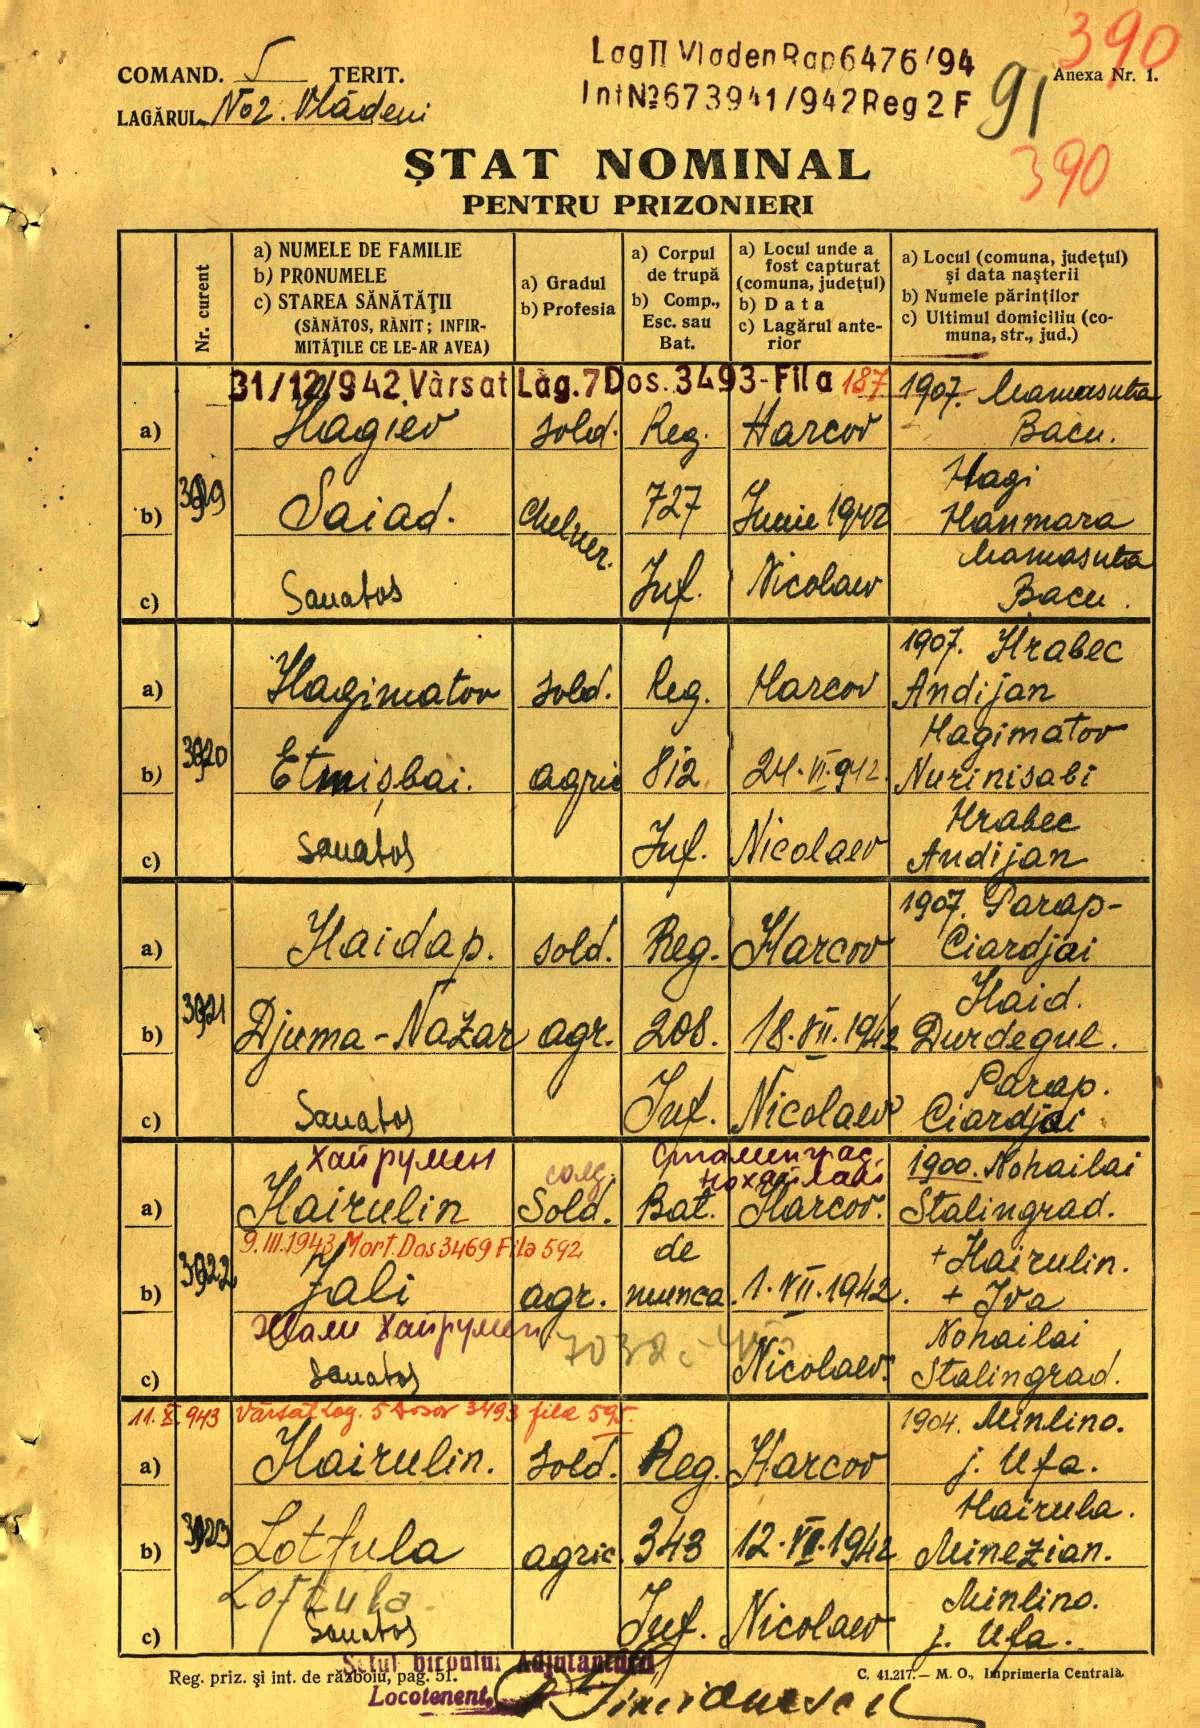 390
Lag II Vladen Rap 6476/94
COMAND. V TERIT.
Anexa Nr. 1.
LAGĂRUL No 2. Vlădeni
Int № 673941/942 Reg 2 F
91
390
ȘTAT NOMINAL
PENTRU PRIZONIERI
Nr. curent
a) NUMELE DE FAMILIE
b) PRONUMELE
c) STAREA SĂNĂTĂȚII
(SĂNĂTOS, RĂNIT; INFIR-
MITĂȚILE CE LE-AR AVEA)
a) Gradul
b) Profesia
a) Corpul
de trupă
b) Comp.,
Esc. sau
Bat.
a) Locul unde a
fost capturat
(comuna, județul)
b) Data
c) Lagărul ante-
rior
a) Locul (comuna, județul)
și data nașterii
b) Numele părinților
c) Ultimul domiciliu (co-
muna, str., jud.)
31/12/942 Vărsat Lag. 7 Dos. 3493 - Fila 187
a) Hagiev sold. Reg. Harcov 1907. Mamasuta
Bacu.
b) Saiad. Chelner. 727 Iunie 1942 Hagi
Hanmara
c) Sanatos Inf. Nicolaev Mamasuta
Bacu.
a) Hagimatov sold. Reg. Harcov 1907. Hrabec
Andijan
b) Etmișbai. agric 812 24.VI.942. Hagimatov
Nurinisabi
c) Sanatos Inf. Nicolaev Hrabec
Andijan
a) Haidap. sold. Reg. Harcov 1907. Parap-
Ciardjai
b) Djuma-Nazar agr. 208. 18.VII.1942 Haid.
Durdegul.
c) Sanatos Inf. Nicolaev Parap.
Ciardjai
Хайрулин солд. Сталинград.
нохайлай
a) Hairulin Sold. Bat. Harcov. 1900. Nohailai
Stalingrad.
9.III.1943 Mort. Dos 3469 Fila 592
b) Jali agr. de
munca 1.VII.1942. + Hairulin.
+ Iva
Жали Хайрулин
c) Sanatos Nicolaev. Nohailai
Stalingrad.
11.X.943 Vărsat Lag. 5 Dosar 3493 fila 595.
a) Hairulin. sold. Reg. Harcov 1904. Minlino.
j. Ufa.
b) 3923 Lotfula agric. 343 12.VII.1942 Hairula.
Minezian.
Lotfula.
c) Sanatos Inf. Nicolaev Minlino.
j. Ufa.
Șeful biroului Adjutanturii
Reg. priz. și int. de războiu, pag. 51.
C. 41.217.— M. O., Imprimeria Centrală
Locotenent,